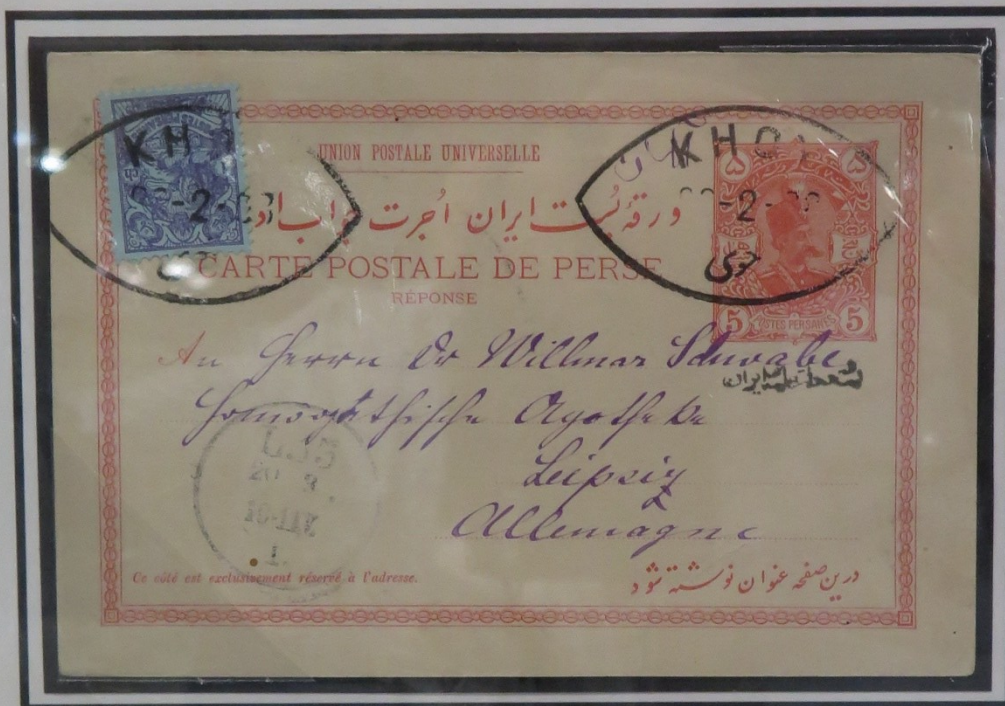 UNION POSTALE UNIVERSELLE
ورقهٔ پست ایران اجرت جواب ادا
CARTE POSTALE DE PERSE
RÉPONSE
KHOY
-2-
خوی
KHOY
-2-
خوی
۵ ۵
5 POSTES PERSANES 5
An Herrn Dr Willmar Schwabe
Homöopathische Apotheke
Leipzig
Allemagne
Ce côté est exclusivement réservé à l'adresse.
درین صفحه عنوان نوشته شود